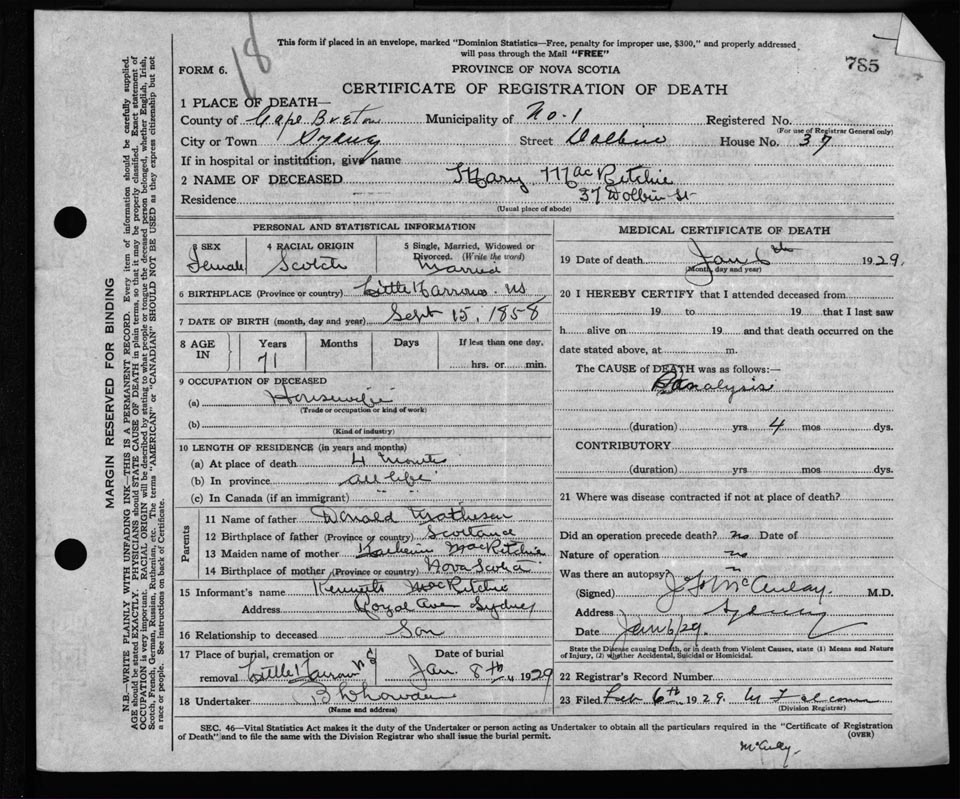 18
This form if placed in an envelope, marked "Dominion Statistics—Free, penalty for improper use, $300," and properly addressed
will pass through the Mail "FREE"
785
FORM 6.
PROVINCE OF NOVA SCOTIA
CERTIFICATE OF REGISTRATION OF DEATH
1 PLACE OF DEATH—
County of Cape Breton Municipality of No. 1 Registered No.
(For use of Registrar General only)
City or Town Sydney Street Dolbin House No. 37
If in hospital or institution, give name
2 NAME OF DECEASED Mary MacRitchie
Residence 37 Dolbin St
(Usual place of abode)
PERSONAL AND STATISTICAL INFORMATION
3 SEX 4 RACIAL ORIGIN 5 Single, Married, Widowed or
Divorced. (Write the word)
Female Scotch Married
6 BIRTHPLACE (Province or country) Little Narrows. NS
7 DATE OF BIRTH (month, day and year) Sept 15, 1858
8 AGE IN Years Months Days If less than one day,
71 hrs. or min.
9 OCCUPATION OF DECEASED
(a) Housewife
(Trade or occupation or kind of work)
(b)
(Kind of industry)
10 LENGTH OF RESIDENCE (in years and months)
(a) At place of death 4 months
(b) In province all life
(c) In Canada (if an immigrant)
Parents
11 Name of father Donald Matheson
12 Birthplace of father (Province or country) Scotland
13 Maiden name of mother MacRitchie
14 Birthplace of mother (Province or country) Nova Scotia
15 Informant's name Kenneth MacRitchie
Address Royal Ave Sydney
16 Relationship to deceased Son
17 Place of burial, cremation or Date of burial
removal Little Narrows NS Jan. 8th 1929
18 Undertaker
(Name and address)
MEDICAL CERTIFICATE OF DEATH
19 Date of death Jan 6th 1929.
(Month, day and year)
20 I HEREBY CERTIFY that I attended deceased from
19 to 19 that I last saw
h alive on 19 and that death occurred on the
date stated above, at m.
The CAUSE of DEATH was as follows:—
Paralysis
(duration) yrs 4 mos dys.
CONTRIBUTORY
(duration) yrs. mos. dys.
21 Where was disease contracted if not at place of death?
Did an operation precede death? no Date of
Nature of operation no
Was there an autopsy?
(Signed) M.D.
Address Sydney
Date Jan 6/29.
State the Disease causing Death, or in death from Violent Causes, state (1) Means and Nature
of Injury, (2) whether Accidental, Suicidal or Homicidal.
22 Registrar's Record Number
23 Filed Feb 6th 1929.
(Division Registrar)
SEC. 46—Vital Statistics Act makes it the duty of the Undertaker or person acting as Undertaker to obtain all the particulars required in the "Certificate of Registration
of Death" and to file the same with the Division Registrar who shall issue the burial permit.
(OVER)
MARGIN RESERVED FOR BINDING
N.B.—WRITE PLAINLY WITH UNFADING INK—THIS IS A PERMANENT RECORD. Every item of information should be carefully supplied.
AGE should be stated EXACTLY. PHYSICIANS should STATE CAUSE OF DEATH in plain terms, so that it may be properly classified. Exact statement of
OCCUPATION is very important. RACIAL ORIGIN will be described by stating to what people or tongue the deceased person belonged, whether English, Irish,
Scotch, French, German, Russian, Ruthenian, etc. The terms "AMERICAN" or "CANADIAN" SHOULD NOT BE USED as they express citizenship but not
a race or people. See instructions on back of Certificate.